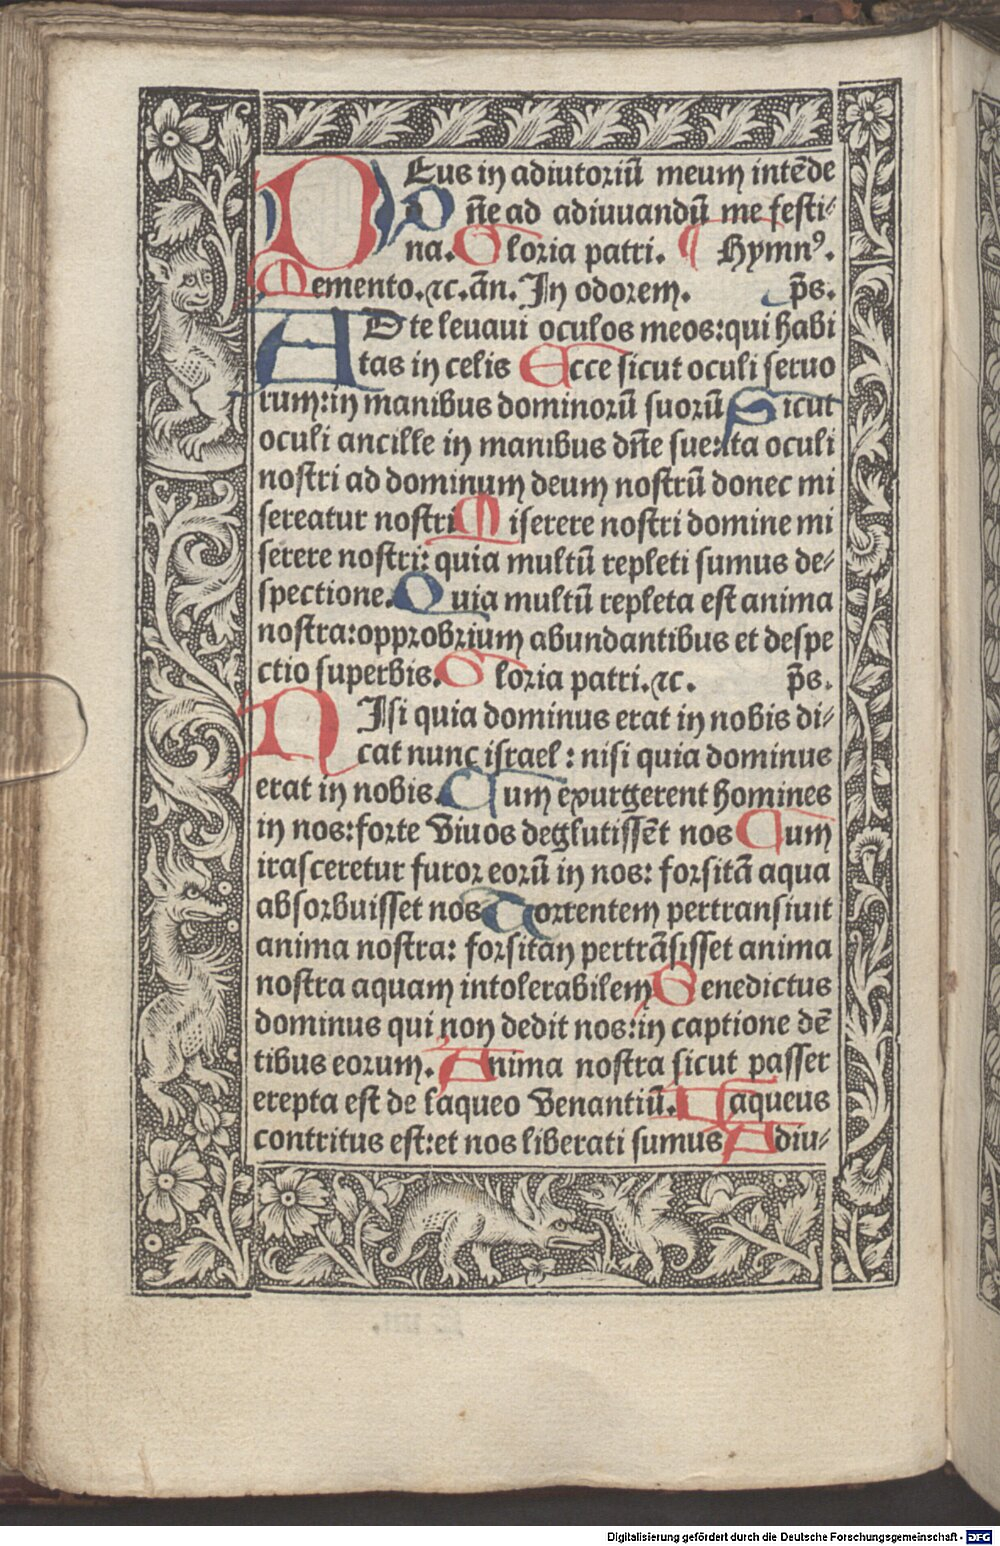 DEus in adiutoriū meum intēde
Dñe ad adiuuandū me festi⸗
na. Gloria patri. ¶ Hymnꝰ.
Memento.⁊c.añ. In odorem. p̄s.
ADte leuaui oculos meos:qui habi
tas in celis Ecce sicut oculi seruo
rum:in manibus dominorū suorū Sicut
oculi ancille in manibus dñe sue:ita oculi
nostri ad dominum deum nostrū donec mi
sereatur nostri Miserere nostri domine mi
serere nostri: quia multū repleti sumus de⸗
spectione. Quia multū repleta est anima
nostra:opprobrium abundantibus et despe
ctio superbis. Gloria patri.⁊c. p̄s.
NIsi quia dominus erat in nobis di⸗
cat nunc israel : nisi quia dominus
erat in nobis. Cum exurgerent homines
in nos:forte viuos deglutissēt nos Cum
irasceretur furor eorū in nos: forsitā aqua
absorbuisset nos Torrentem pertransiuit
anima nostra: forsitan pertrāsisset anima
nostra aquam intolerabilem Benedictus
dominus qui non dedit nos:in captione dē
tibus eorum. Anima nostra sicut passer
erepta est de laqueo venantiū. Laqueus
contritus est:et nos liberati sumus Adiu⸗
Digitalisierung gefördert durch die Deutsche Forschungsgemeinschaft - DFG